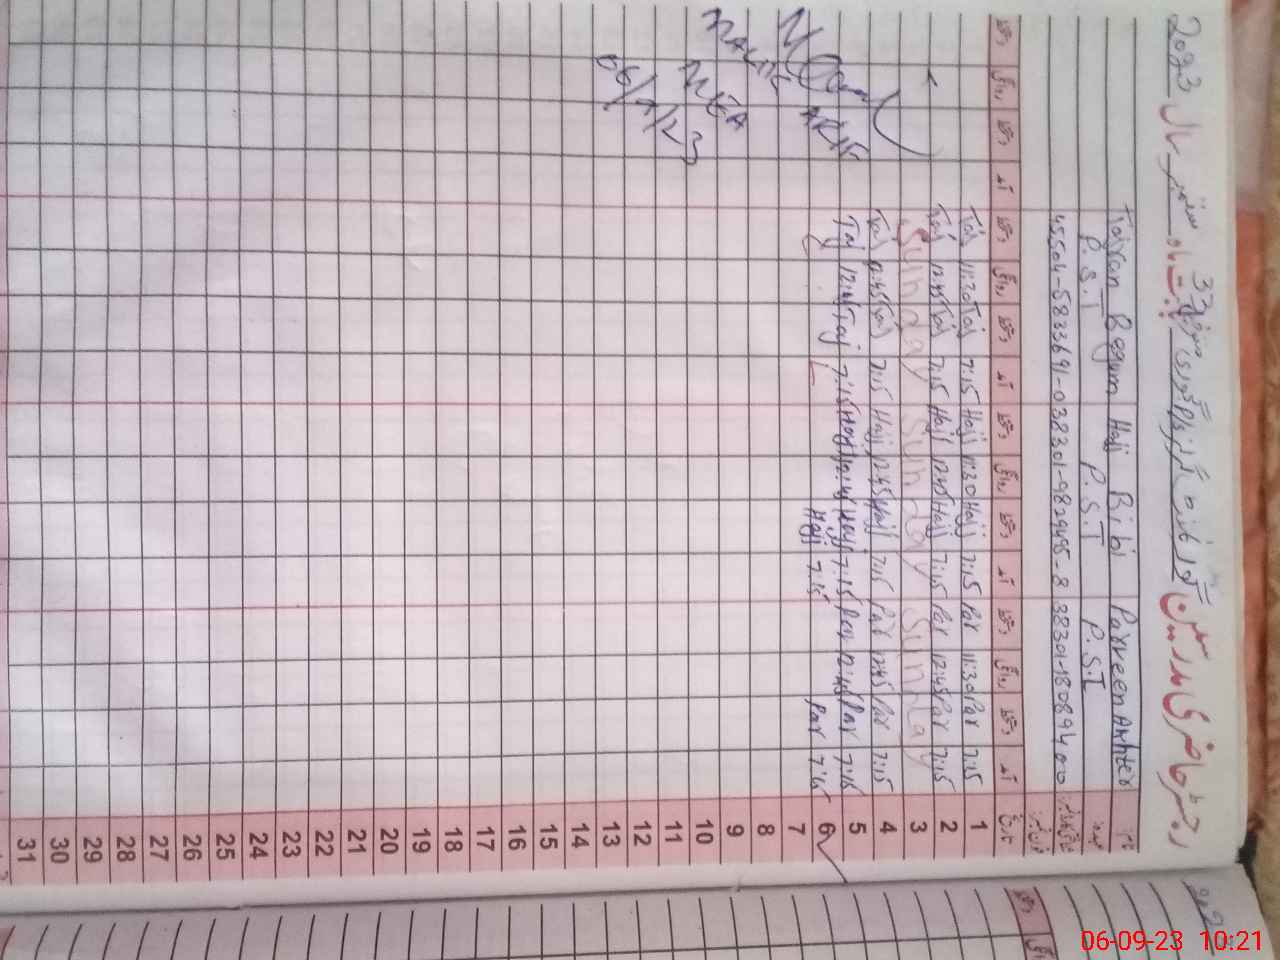 رجسٹر حاضری مدرسین گورنمنٹ گرلز پرائمری سکول بابت ماہ ستمبر سال 2023
نام Parveen Akhter Hajj Bibi Tajran Begum
عہدہ P.S.T P.S.T P.S.T
تاریخ آمد دستخط روانگی دستخط آمد دستخط روانگی دستخط آمد دستخط روانگی دستخط آمد دستخط روانگی دستخط
1 7:15 Par 11:30 Par 7:15 Hajj 11:30 Hajj 7:15 Taj 11:30 Taj
2 7:15 Par 12:45 Par 7:15 Hajj 12:45 Hajj 7:15 Taj 12:45 Taj
3 Sunday Sunday Sunday
4 7:15 Par 12:45 Par 7:15 Hajj 12:45 Hajj 7:15 Taj 12:45 Taj
5 7:15 Par 12:45 Par 7:15 Hajj 12:45 Hajj 7:15 Taj 12:45 Taj
6 7:15 Par 7:15 Hajj L
7
8
9
10
11
12
13
14
15
16
17
18
19
20
21
22
23
24
25
26
27
28
29
30
31
MEA
06/9/23
06-09-23 10:21